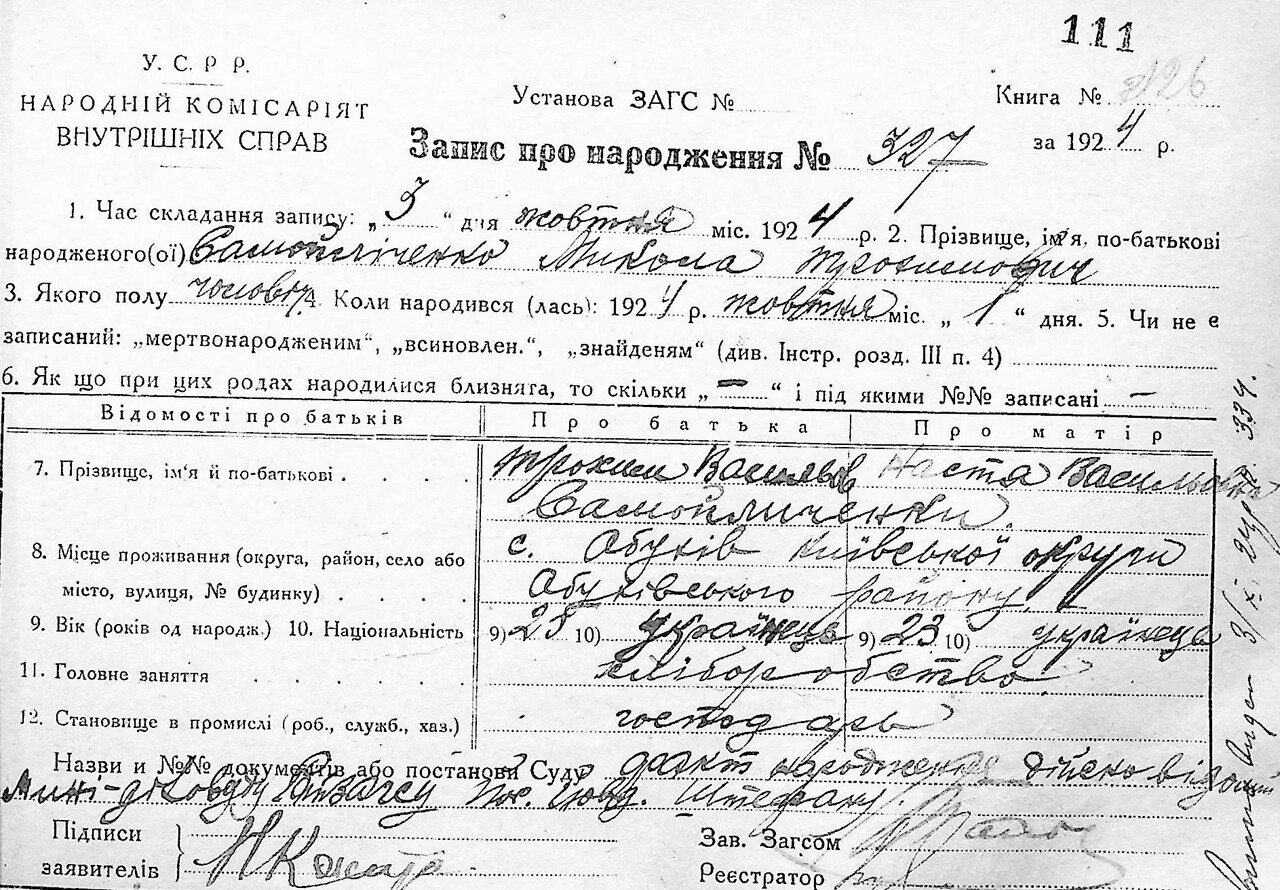 111
У. С. Р Р.
НАРОДНІЙ КОМІСАРІЯТ
ВНУТРІШНІХ СПРАВ
Установа ЗАГС №
Книга №
за 1924 р.
Запис про народження № 327
1. Час складання запису: „3“ дня жовтня міс. 1924 р. 2. Прізвище, ім'я, по-батькові
народженого(ої) Самойличенко Микола Трохимович
3. Якого полу чоловіч. 4. Коли народився (лась): 1924 р. жовтня міс. „1“ дня. 5. Чи не є
записаний: „мертвонародженим“, „всиновлен.“, „знайденям“ (див. Інстр. розд. III п. 4)
6. Як що при цих родах народилися близнята, то скільки „—“ і під якими №№ записані —
Відомості про батьків Про батька Про матір
7. Прізвище, ім'я й по-батькові . . . . Трохим Васильов Настя Васильовна
Самойличенки.
8. Місце проживання (округа, район, село або с. Обухів Київської округи
місто, вулиця, № будинку) . . . . Обухівського району
9. Вік (років од народж.) 10. Національність 9) 25 10) українець 9) 23 10) українець
11. Головне заняття . . . . . хліборобство
12. Становище в промислі (роб., служб., хаз.) господарь
Назви и №№ документів або постанови Суду факт народження дійсно
Підписи
заявителів
Зав. Загсом
Реєстратор